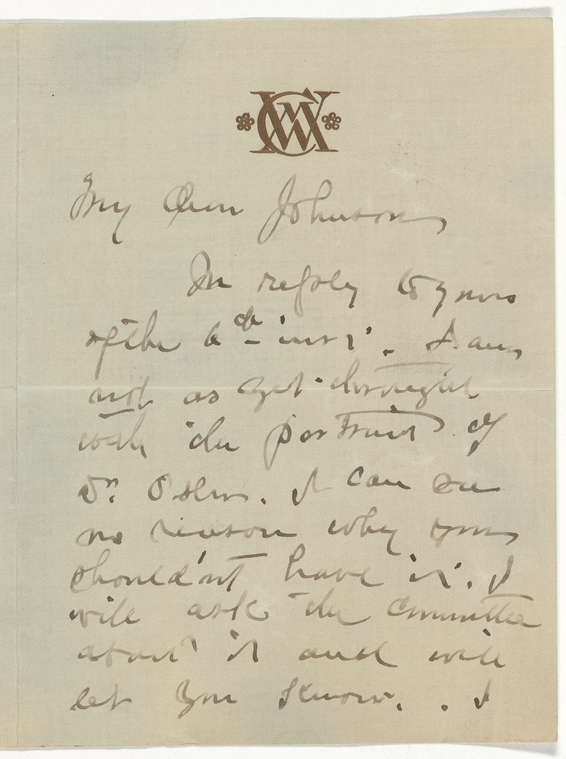 My Dear Johnson,
In reply to yours
of the 6th inst. I am
not as yet through
with the portrait of
Dr. Osler. I can see
no reason why you
should'nt have it. I
will ask the committee
about it and will
let you know. . I